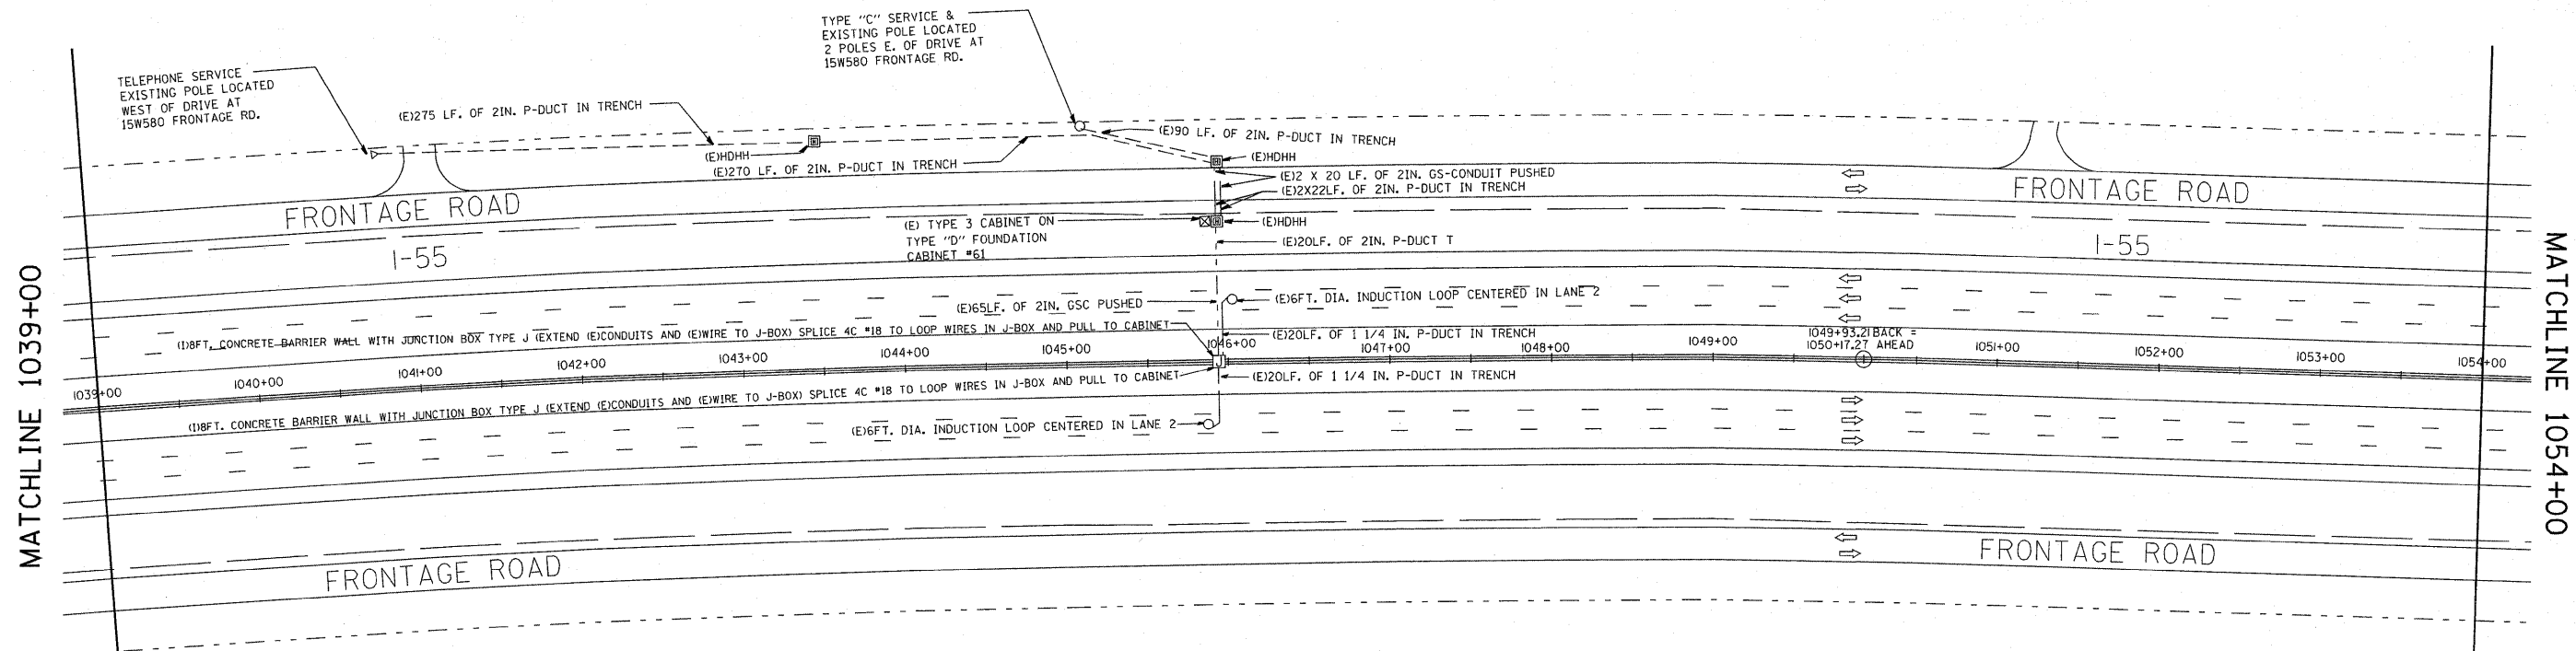 TYPE "C" SERVICE &
EXISTING POLE LOCATED
2 POLES E. OF DRIVE AT
15W580 FRONTAGE RD.
TELEPHONE SERVICE
EXISTING POLE LOCATED
WEST OF DRIVE AT
15W580 FRONTAGE RD.
(E)275 LF. OF 2IN. P-DUCT IN TRENCH
(E)90 LF. OF 2IN. P-DUCT IN TRENCH
(E)HDHH
(E)HDHH
(E)270 LF. OF 2IN. P-DUCT IN TRENCH
(E)2 X 20 LF. OF 2IN. GS-CONDUIT PUSHED
(E)2X22LF. OF 2IN. P-DUCT IN TRENCH
FRONTAGE ROAD
FRONTAGE ROAD
(E) TYPE 3 CABINET ON
TYPE "D" FOUNDATION
CABINET #61
(E)HDHH
(E)20LF. OF 2IN. P-DUCT T
I-55
I-55
(E)65LF. OF 2IN. GSC PUSHED
(E)6FT. DIA. INDUCTION LOOP CENTERED IN LANE 2
(I)8FT. CONCRETE BARRIER WALL WITH JUNCTION BOX TYPE J (EXTEND (E)CONDUITS AND (E)WIRE TO J-BOX) SPLICE 4C #18 TO LOOP WIRES IN J-BOX AND PULL TO CABINET
(E)20LF. OF 1 1/4 IN. P-DUCT IN TRENCH
1049+93.21 BACK =
1050+17.27 AHEAD
1039+00
1040+00
1041+00
1042+00
1043+00
1044+00
1045+00
1046+00
1047+00
1048+00
1049+00
1051+00
1052+00
1053+00
1054+00
J
(I)8FT. CONCRETE BARRIER WALL WITH JUNCTION BOX TYPE J (EXTEND (E)CONDUITS AND (E)WIRE TO J-BOX) SPLICE 4C #18 TO LOOP WIRES IN J-BOX AND PULL TO CABINET
(E)20LF. OF 1 1/4 IN. P-DUCT IN TRENCH
(E)6FT. DIA. INDUCTION LOOP CENTERED IN LANE 2
FRONTAGE ROAD
FRONTAGE ROAD
MATCHLINE 1039+00
MATCHLINE 1054+00